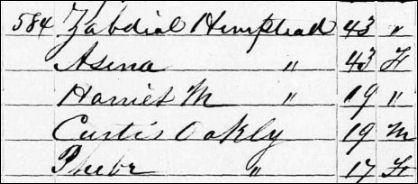 584 Zabdial Hempstead 43 "
Asena " 43 F
Harriet M " 19 "
Curtis Oakly 19 M
Phebe " 17 F